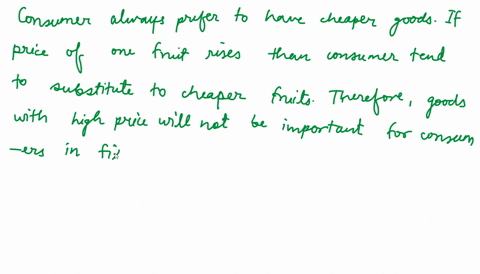 Consumer always prefer to have cheaper goods. If
price of one fruit rises than consumer tend
to substitute to cheaper fruits. Therefore, goods
with high price will not be important for consum
-ers in